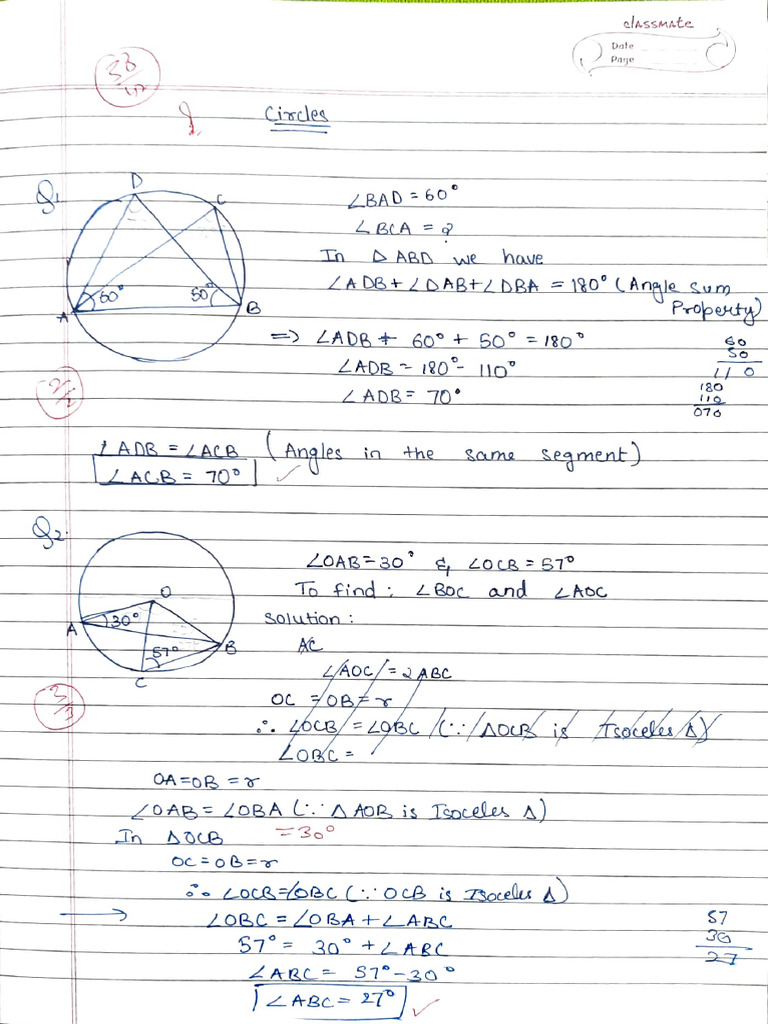 classmate
Date
Page
38
Circles
Q1
D
C
A
B
60°
50°
∠BAD = 60°
∠BCA = ?
In △ABD we have
∠ADB + ∠DAB + ∠DBA = 180° (Angle sum Property)
=> ∠ADB + 60° + 50° = 180°
∠ADB = 180° - 110°
∠ADB = 70°
60
50
110
180
110
070
2/2
∠ADB = ∠ACB (Angles in the same segment)
∠ACB = 70° ✓
Q2.
O
A
B
C
30°
57°
∠OAB = 30° & ∠OCB = 57°
To find : ∠BOC and ∠AOC
Solution :
AC
∠AOC = 2ABC
OC = OB = r
∴ ∠OCB = ∠OBC (∵ △OCB is Isoceles △)
∠OBC =
3/3
OA = OB = r
∠OAB = ∠OBA (∵ △AOB is Isoceles △)
= 30°
In △OCB
OC = OB = r
∴ ∠OCB = ∠OBC (∵ OCB is Isoceles △)
→ ∠OBC = ∠OBA + ∠ABC
57° = 30° + ∠ABC
∠ABC = 57° - 30°
∠ABC = 27° ✓
57
30
27